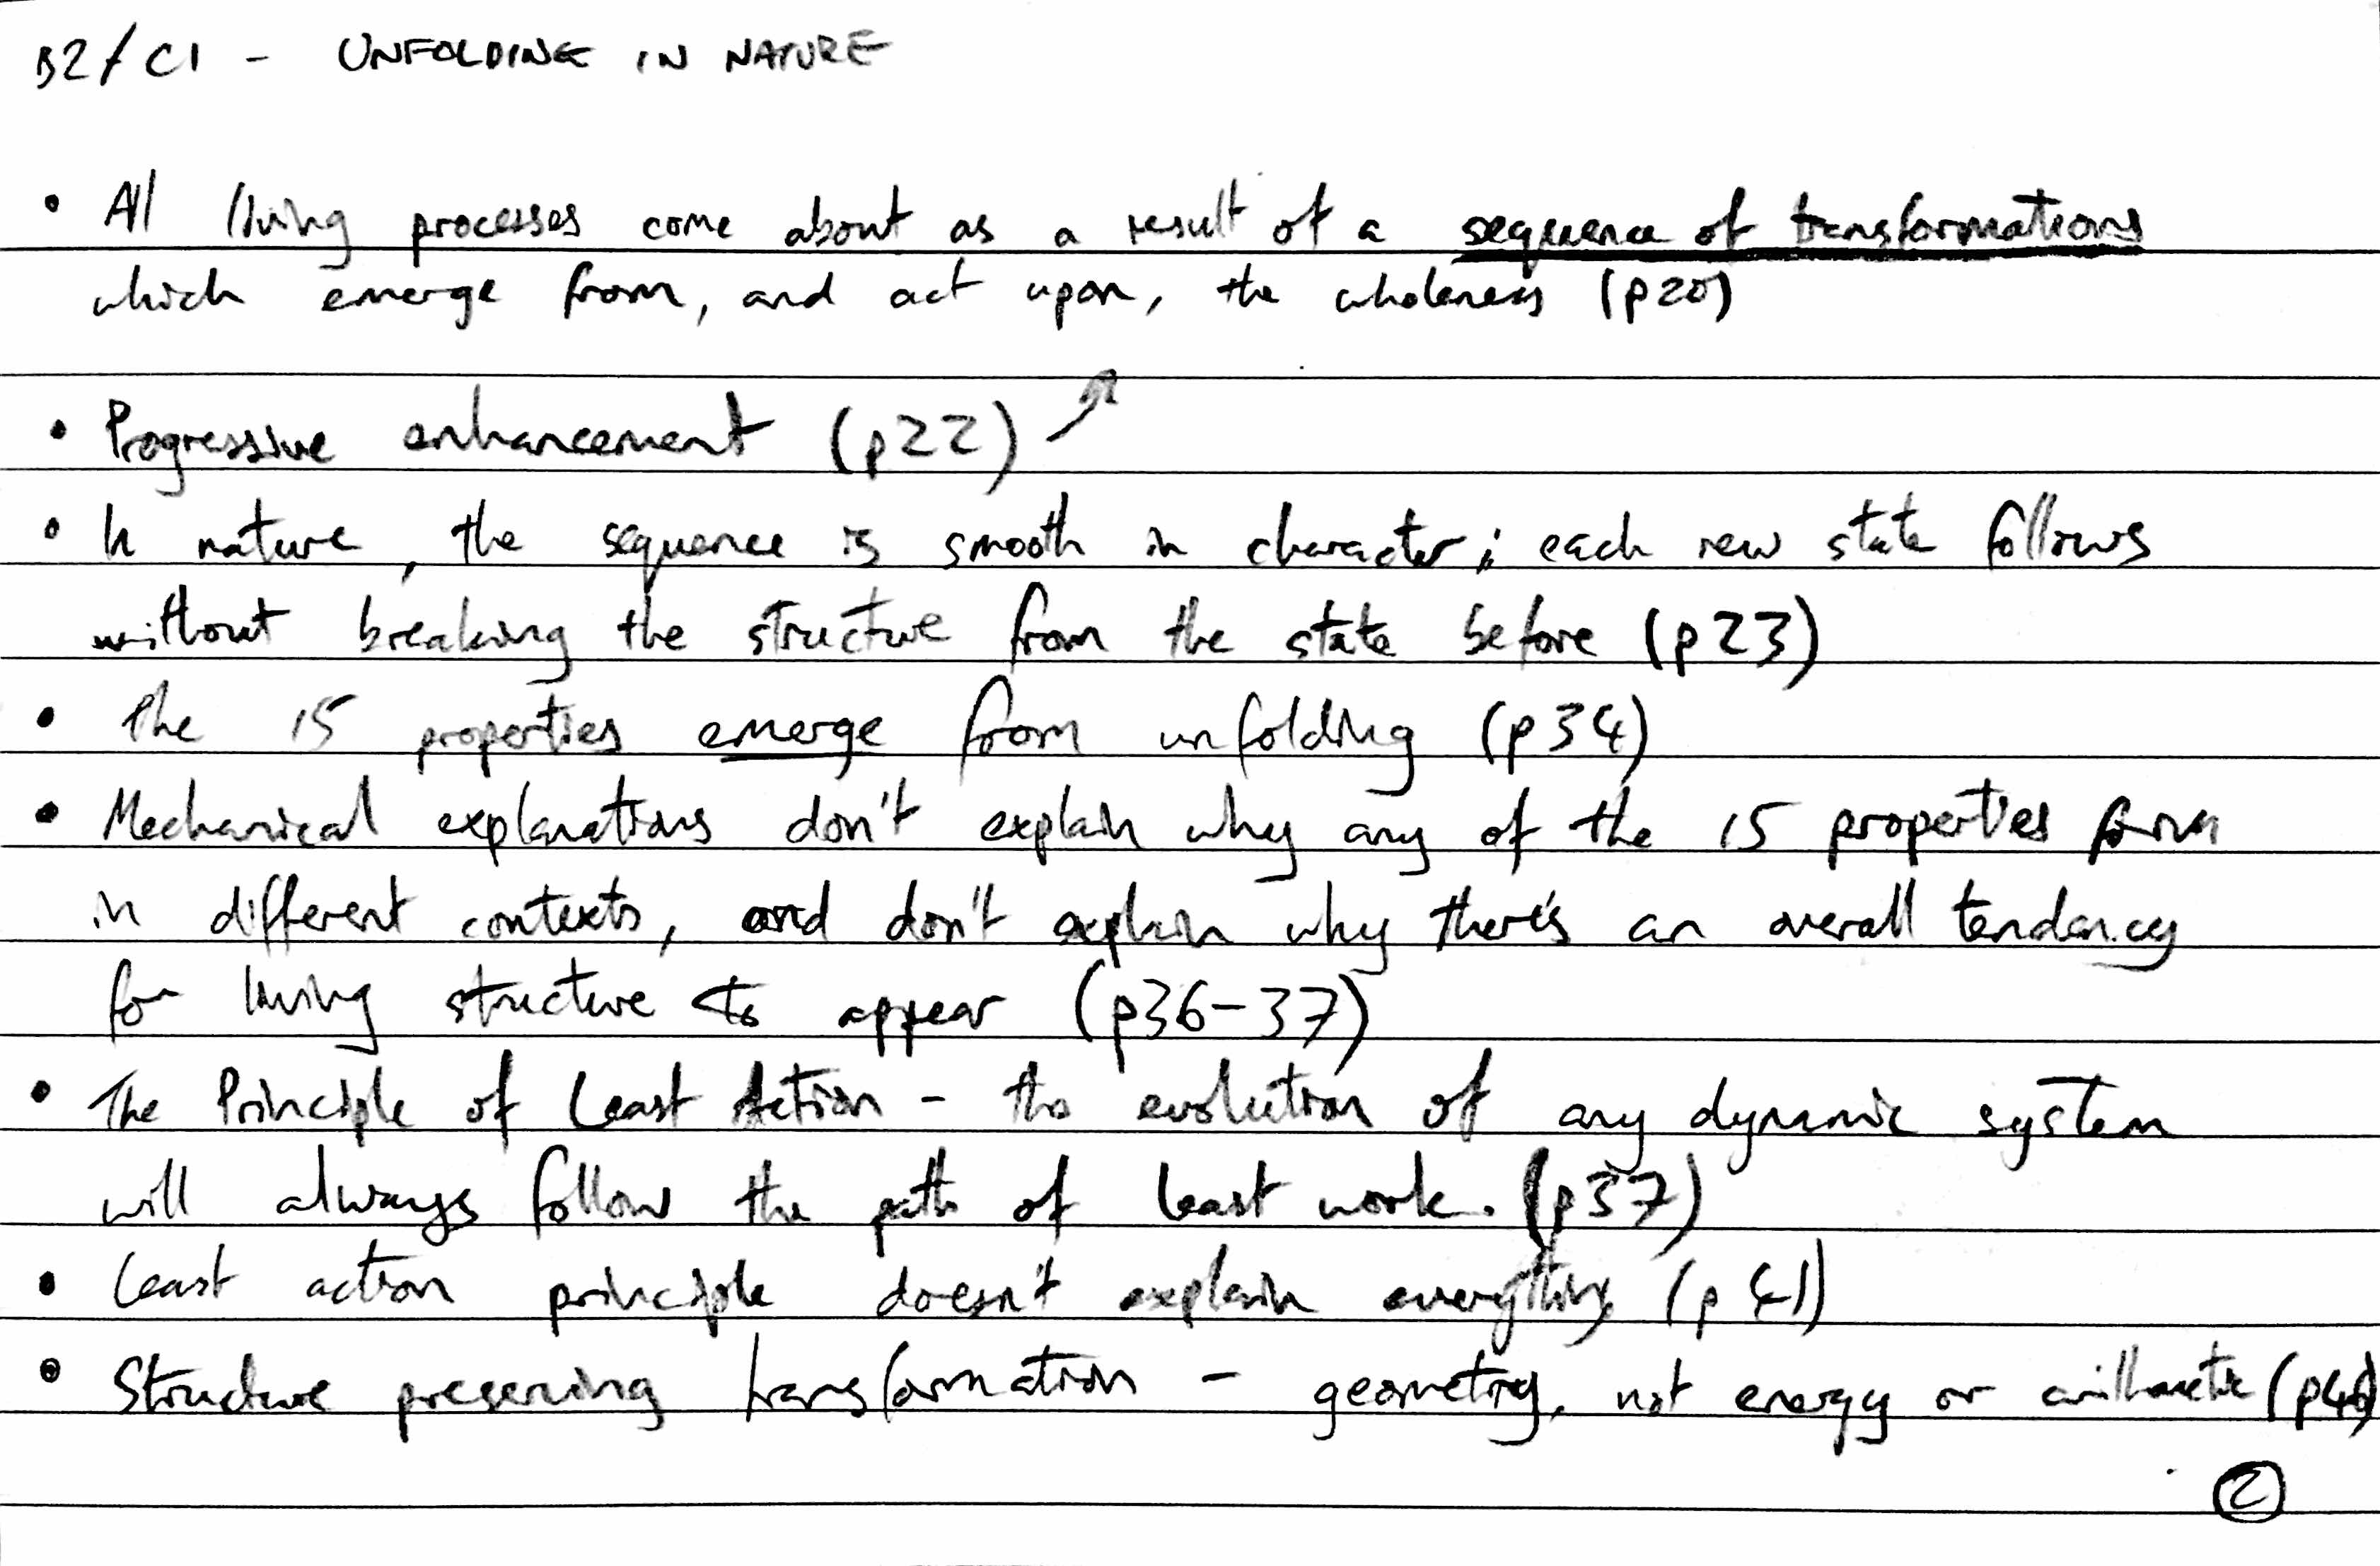 B2/C1 - UNFOLDING IN NATURE
• All living processes come about as a result of a sequence of transformations
which emerge from, and act upon, the wholeness (p20)
• Progressive enhancement (p22) ↗
• In nature, the sequence is smooth in character; each new state follows
without breaking the structure from the state before (p23)
• The 15 properties emerge from unfolding (p34)
• Mechanical explanations don't explain why any of the 15 properties form
in different contexts, and don't explain why there's an overall tendency
for living structure to appear (p36-37)
• The Principle of Least Action - the evolution of any dynamic system
will always follow the path of least work. (p37)
• Least action principle doesn't explain everything (p41)
• Structure preserving transformation - geometry, not energy or arithmetic
2